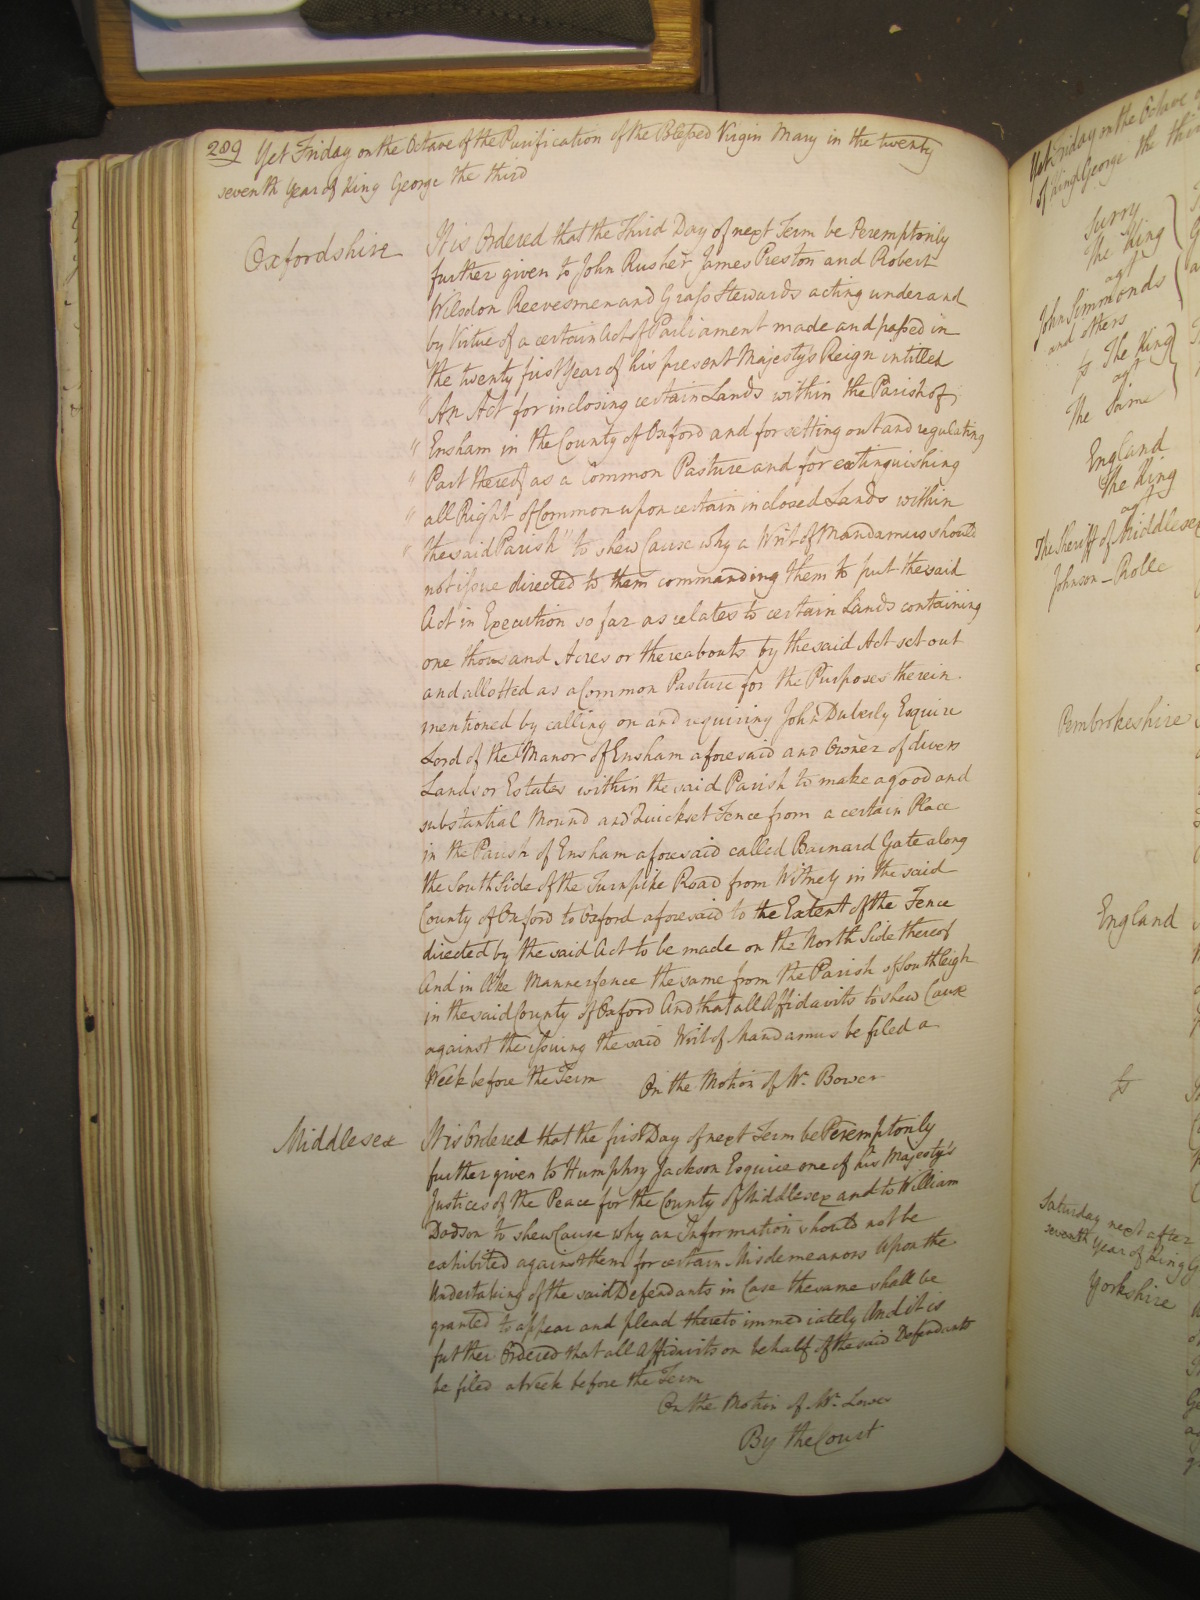 209 Yet Friday on the Octave of the Purification of the Blessed Virgin Mary in the twenty
seventh Year of King George the third
Oxfordshire It is Ordered that the Third Day of next Term be Peremptorily
further given to John Rusher James Preston and Robert
Wilsdon Reevesmen and Grass Stewards acting under and
by Virtue of a certain Act of Parliament made and passed in
the twenty first Year of his present Majesty's Reign intitled
" An Act for inclosing certain Lands within the Parish of
" Ensham in the County of Oxford and for setting out and regulating
" Part thereof as a Common Pasture and for extinguishing
" all Right of Common upon certain inclosed Lands within
" the said Parish" to shew Cause why a Writ of Mandamus should
not issue directed to them commanding them to put the said
Act in Execution so far as relates to certain Lands containing
one thousand Acres or thereabouts by the said Act set out
and allotted as a Common Pasture for the Purposes therein
mentioned by calling on and requiring John Duberly Esquire
Lord of the Manor of Ensham aforesaid and Owner of divers
Lands or Estates within the said Parish to make a good and
substantial Mound and Quickset Fence from a certain Place
in the Parish of Ensham aforesaid called Barnard Gate along
the South Side of the Turnpike Road from Witney in the said
County of Oxford to Oxford aforesaid to the Extent of the Fence
directed by the said Act to be made on the North Side thereof
And in like Manner fence the same from the Parish of Southleigh
in the said County of Oxford And that all Affidavits to shew Cause
against the issuing the said Writ of Mandamus be filed a
Week before the Term On the Motion of Mr. Bower
Middlesex It is Ordered that the first Day of next Term be Peremptorily
further given to Humphry Jackson Esquire one of his Majesty's
Justices of the Peace for the County of Middlesex and to William
Dodson to shew Cause why an Information should not be
exhibited against them for certain Misdemeanors Upon the
Undertaking of the said Defendants in Case the same shall be
granted to appear and plead thereto immediately And it is
further Ordered that all Affidavits on behalf of the said Defendants
be filed a Week before the Term
On the Motion of Mr. Lowes
By the Court
Yet Friday on the Octave
of King George the thi
Surry
The King
agt
John Simmonds
and others
The King
agt
The Same
England
The King
agt
The Sheriff of Middlesex
Johnson - Rolle
Pembrokeshire
England
Saturday next after
seventh Year of King G
Yorkshire